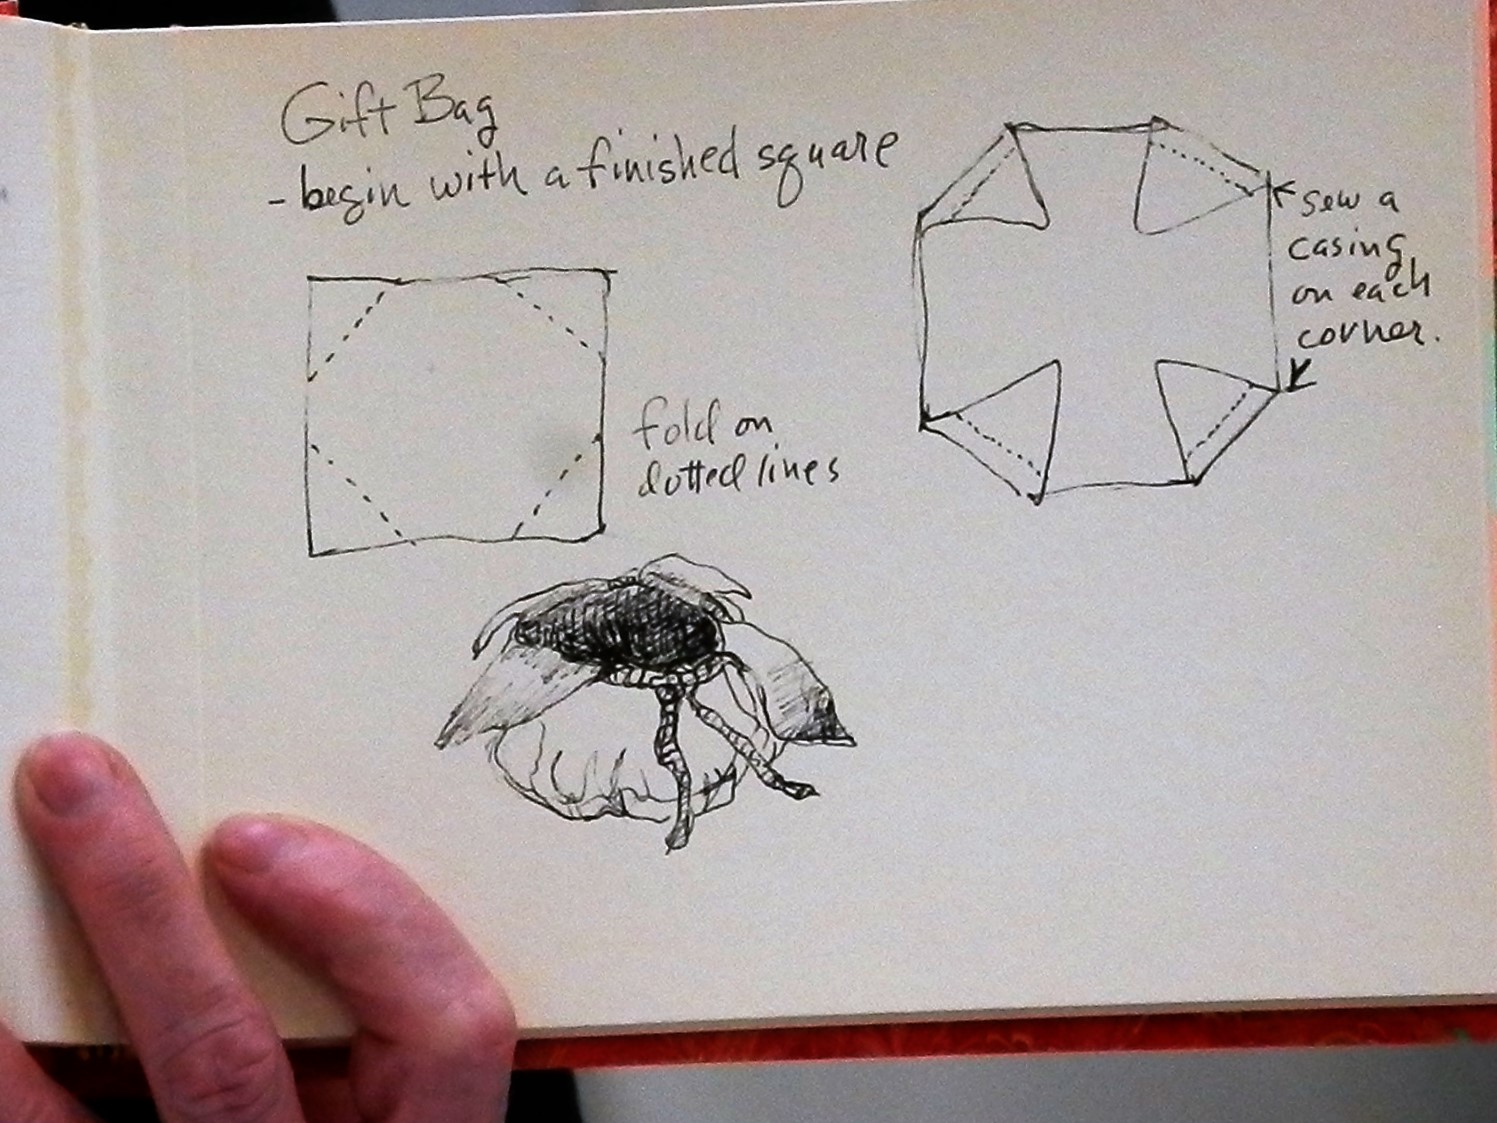 Gift Bag
- begin with a finished square
fold on
dotted lines
sew a
casing
on each
corner.